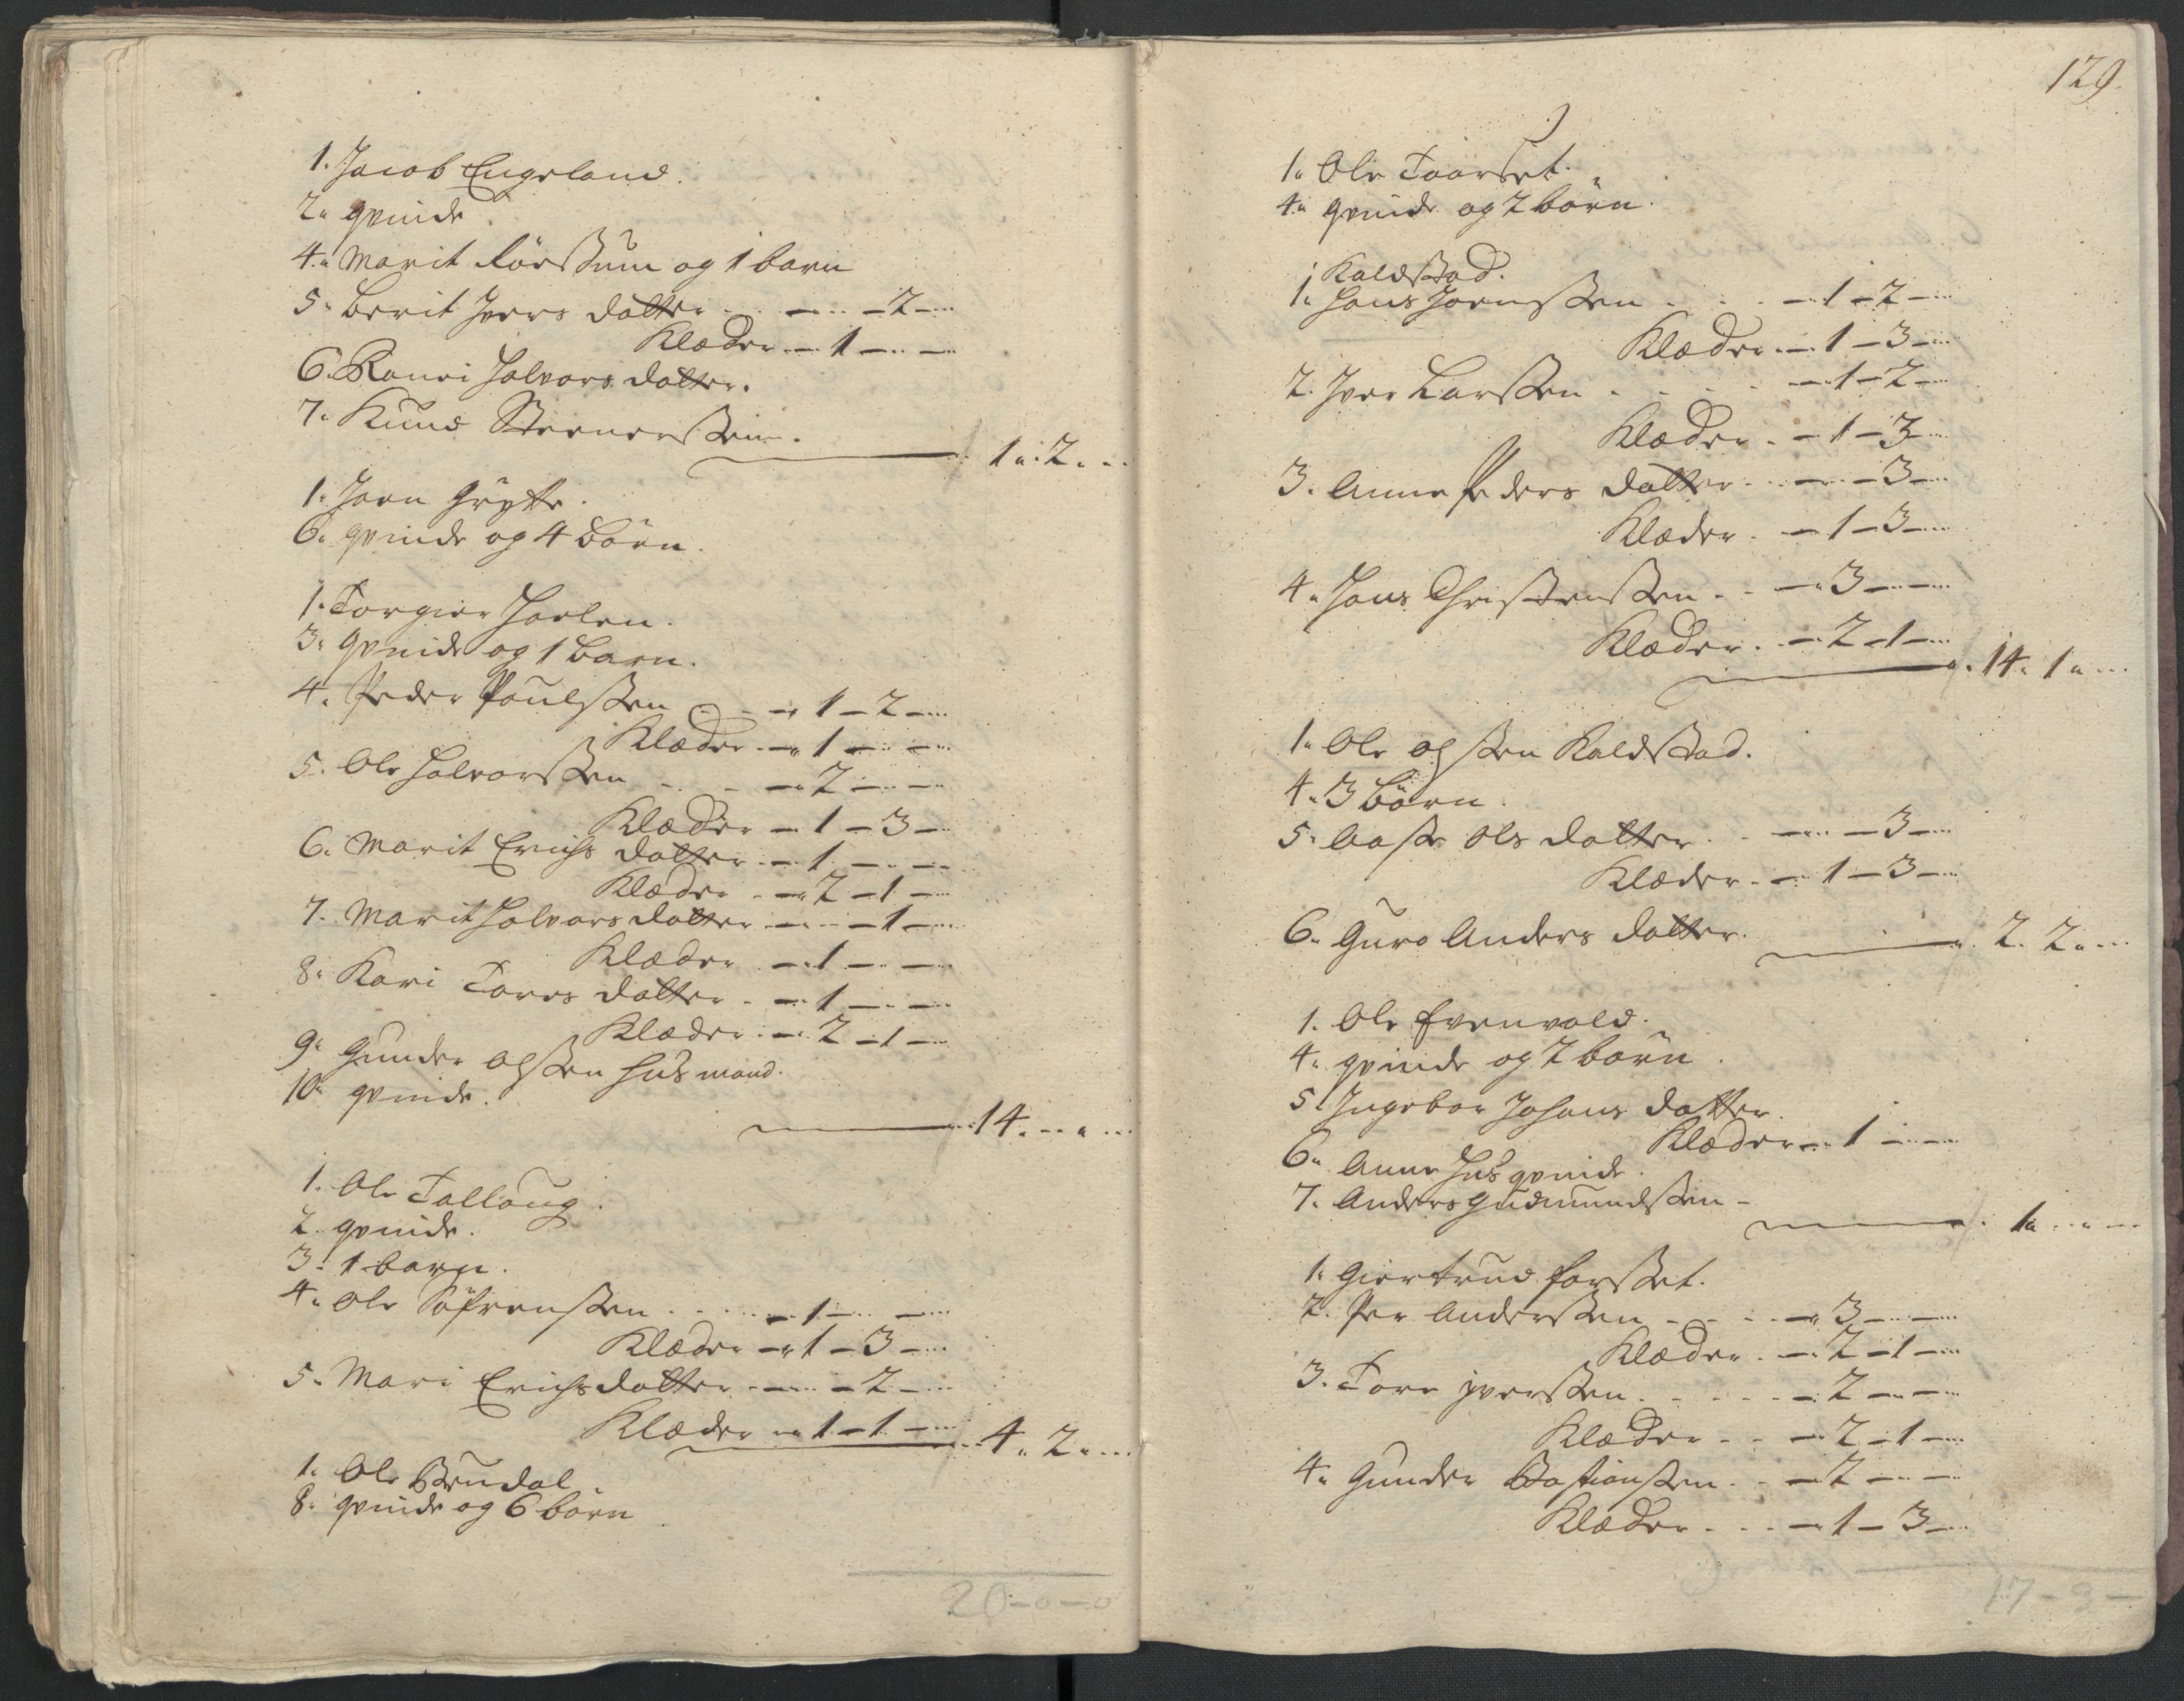 1. Jacob Engeland.
2. qvinde
4. Marit Rørstum og 1 barn
5. Berit Ivers datter - - - 2 -
Klæder - 1 - -
6. Ranvi Halvors datter.
7. Knud Steenersten.
1. 2. -
1. Joen Grytte.
6. qvinde og 4 børn.
1. Torgier Haelen.
3. qvinde og 1 barn.
4. Peder Poulsten - 1 - 2 -
Klæder - 1 - -
5. Ole Halvorsten - 2 - -
Klæder - 1 - 3 -
6. Marit Erichs datter - 1 - -
Klæder - 2 - 1 -
7. Marit Halvors datter - - 1 -
Klæder - 1 - -
8. Kari Tores datter - 1 - -
Klæder - 2 - 1 -
9. Gunder Olsten husmand.
10. qvinde.
14. - -
1. Ole Talloug.
2. qvinde.
3. 1 barn.
4. Ole Søfrensten - 1 - -
Klæder - 1 - 3 -
5. Mari Erichsdatter - - 2 -
Klæder - 1 - 1 -
4. 2. -
1. Ole Stendal
8. qvinde og 6 børn
20 - 0 - 0
129.
1. Ole Toorset.
4. qvinde og 2 børn.
Kaldstad.
1. Hans Joensten - 1 - 2 -
Klæder - 1 - 3 -
2. Iver Larsten - 1 - 2 -
Klæder - 1 - 3 -
3. Anne Peders datter - - 3 -
Klæder - 1 - 3 -
4. Hans Christensten - 3 - -
Klæder - 2 - 1 -
14. 1. -
1. Ole Olsten Kaldstad.
4. 3 børn.
5. Aaste Ols datter - - 3 -
Klæder - 1 - 3 -
6. Guro Anders datter.
2. 2. -
1. Ole Evenvold.
4. qvinde og 2 børn.
5. Ingebor Johans datter.
Klæder - 1 - -
6. Anne husqvinde.
7. Anders Gudmundsten -
1. - -
1. Giertrud Forset.
2. Per Andersten - 3 - -
Klæder - 2 - 1 -
3. Tore Iversten - 2 - -
Klæder - 2 - 1 -
4. Gunder Bastiansten - 2 - -
Klæder - 1 - 3 -
17 - 3 -